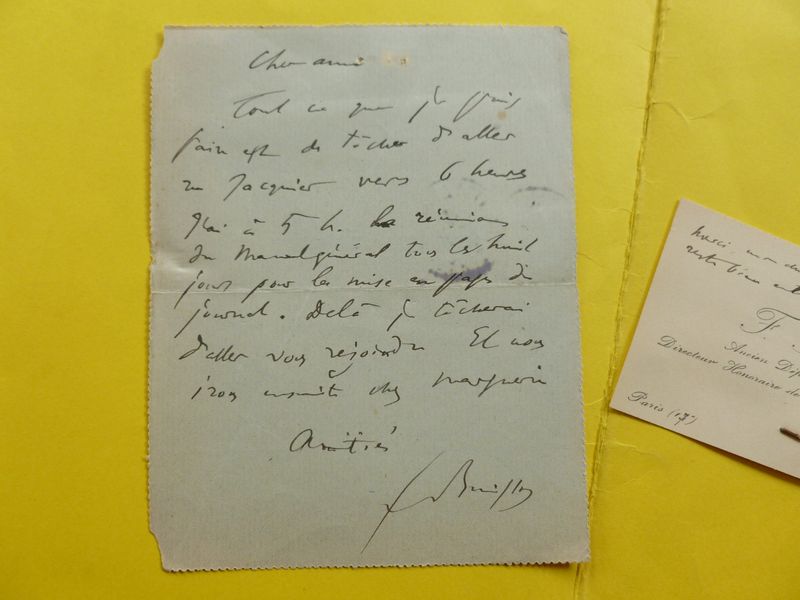 Cher ami
Tout ce que je puis
faire est de tâcher d'aller
au Jacquier vers 6 heures
J'ai à 5 h. la réunion
du Manuel général tous les huit
jours pour la mise en pages du
journal. De là je tâcherai
d'aller vous rejoindre Et nous
irons ensuite chez
Amitiés
F Buisson
merci mon
reste bien
F.
Ancien Dép
Directeur Honoraire de
Paris (17e)